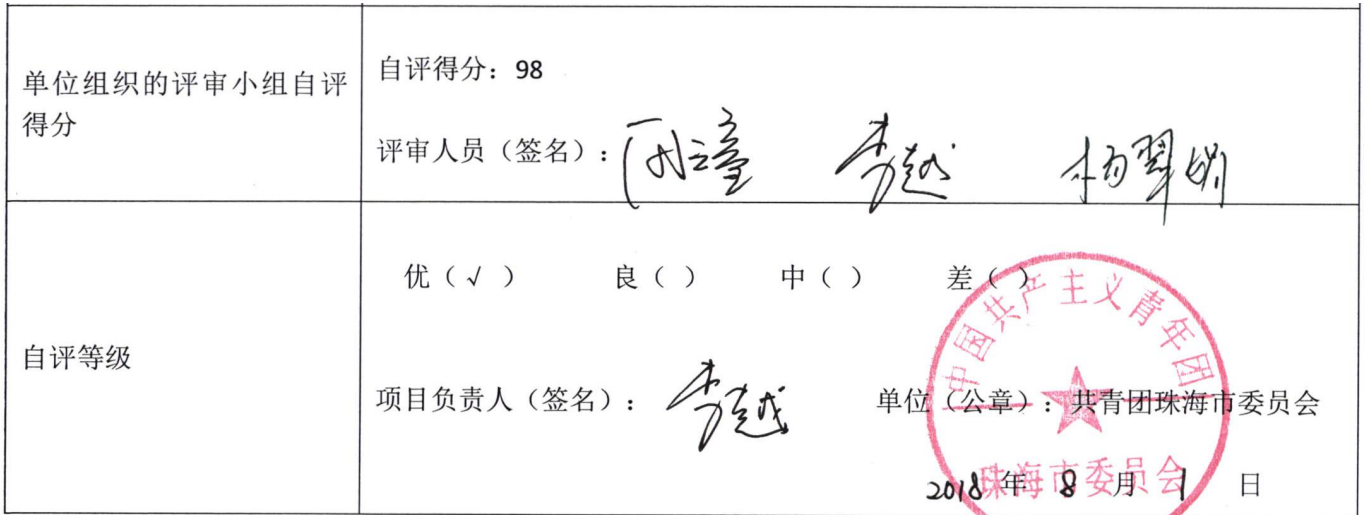 单位组织的评审小组自评
得分
自评得分：98
评审人员（签名）： 李越 杨翠娟
自评等级
优（√ ） 良（ ） 中（ ） 差（ ）
项目负责人（签名）： 李越 单位（公章）：共青团珠海市委员会
2018年 8 月 1 日
中国共产主义青年团
珠海市委员会